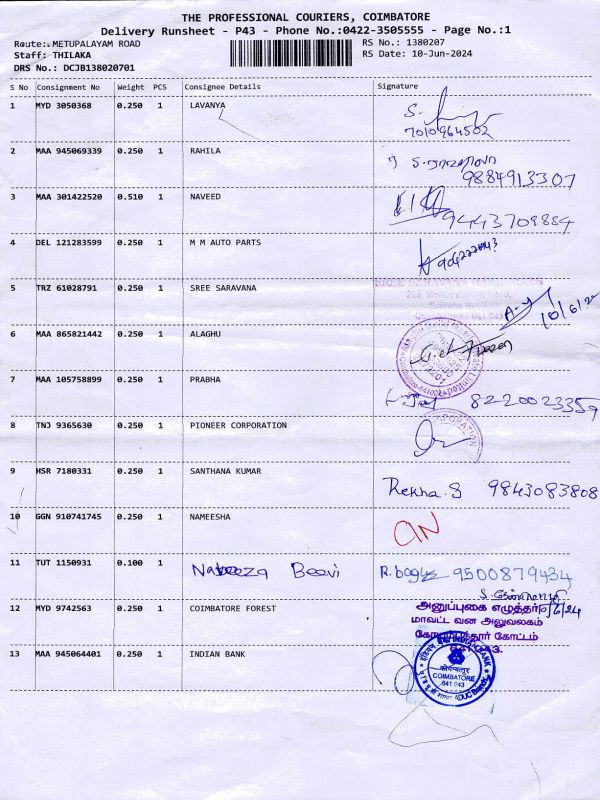 THE PROFESSIONAL COURIERS, COIMBATORE
Delivery Runsheet - P43 - Phone No.:0422-3505555 - Page No.:1
Route:. METUPALAYAM ROAD
RS No.: 1380207
Staff: THILAKA
RS Date: 10-Jun-2024
DRS No.: DCJB138020701
S No Consignment No Weight PCS Consignee Details Signature
1 MYD 3050368 0.250 1 LAVANYA
7010964502
2 MAA 945069339 0.250 1 RAHILA
9884913307
3 MAA 301422520 0.510 1 NAVEED
9443709884
4 DEL 121283599 0.250 1 M M AUTO PARTS
5 TRZ 61028791 0.250 1 SREE SARAVANA
10/6/24
6 MAA 865821442 0.250 1 ALAGHU
7 MAA 105758899 0.250 1 PRABHA
8220023359
8 TNJ 9365630 0.250 1 PIONEER CORPORATION
9 HSR 7180331 0.250 1 SANTHANA KUMAR
Rekha.S 9843083808
10 GGN 910741745 0.250 1 NAMEESHA
11 TUT 1150931 0.100 1 Nabeeza Beevi 9500879434
12 MYD 9742563 0.250 1 COIMBATORE FOREST
அனுப்புகை எழுத்தர் 10/6/24
மாவட்ட வன அலுவலகம்
கோயம்புத்தூர் கோட்டம்
13 MAA 945064401 0.250 1 INDIAN BANK
INDIAN BANK
कोयम्बत्तूर
COIMBATORE
641 043